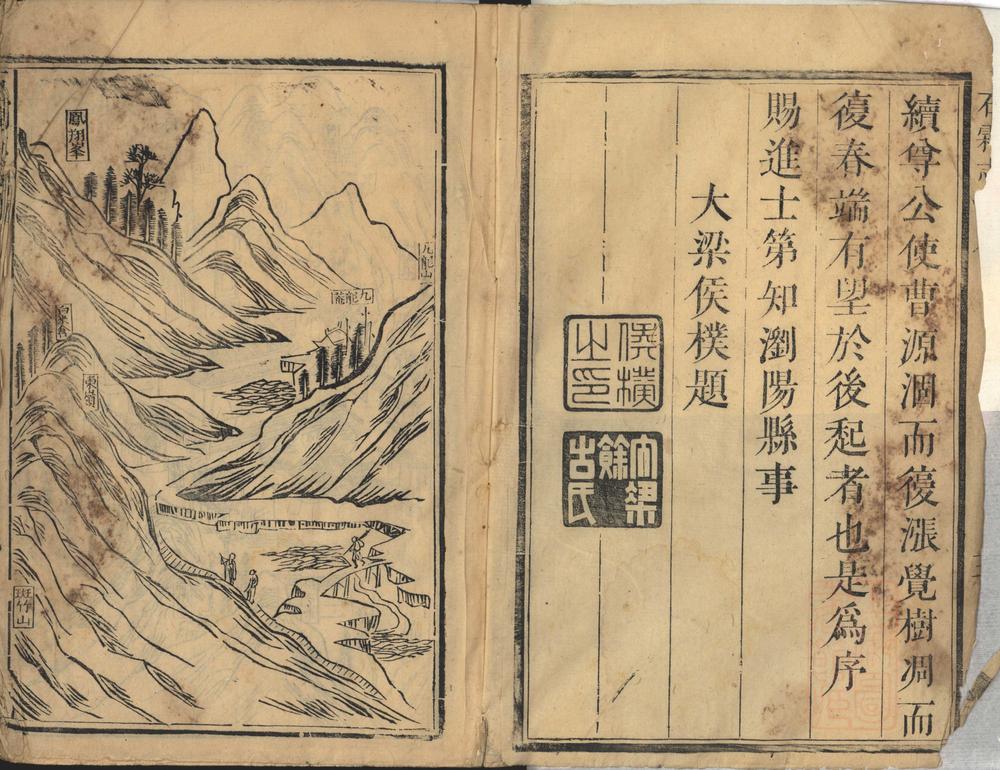 續尊公使曹源涸而復漲覺樹凋而
復春端有望於後起者也是爲序
賜進士第知瀏陽縣事
大梁侯樸題
侯樸之印
石霜志
九龍山
九龍菴
鳳翔峯
東嶺
斑竹山